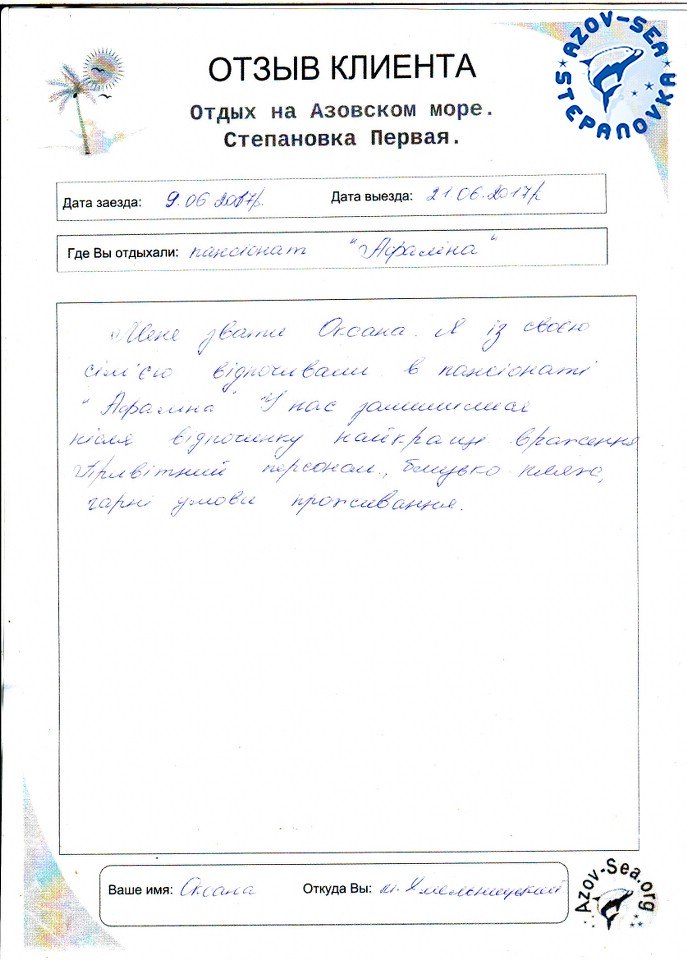 AZOV-SEA
STEPANOVKA
ОТЗЫВ КЛИЕНТА
Отдых на Азовском море.
Степановка Первая.
Дата заезда: 9.06 2017р. Дата выезда: 21 06.2017р
Где Вы отдыхали: пансіонат "Афаліна"
Мене звати Оксана. Я із своєю
сім'єю відпочивали в пансіонаті
"Афаліна" У нас залишилися
після відпочинку найкращі враження
Привітний персонал, близько пляж,
гарні умови проживання.
Ваше имя: Оксана Откуда Вы: м. Хмельницький
Azov-Sea.org